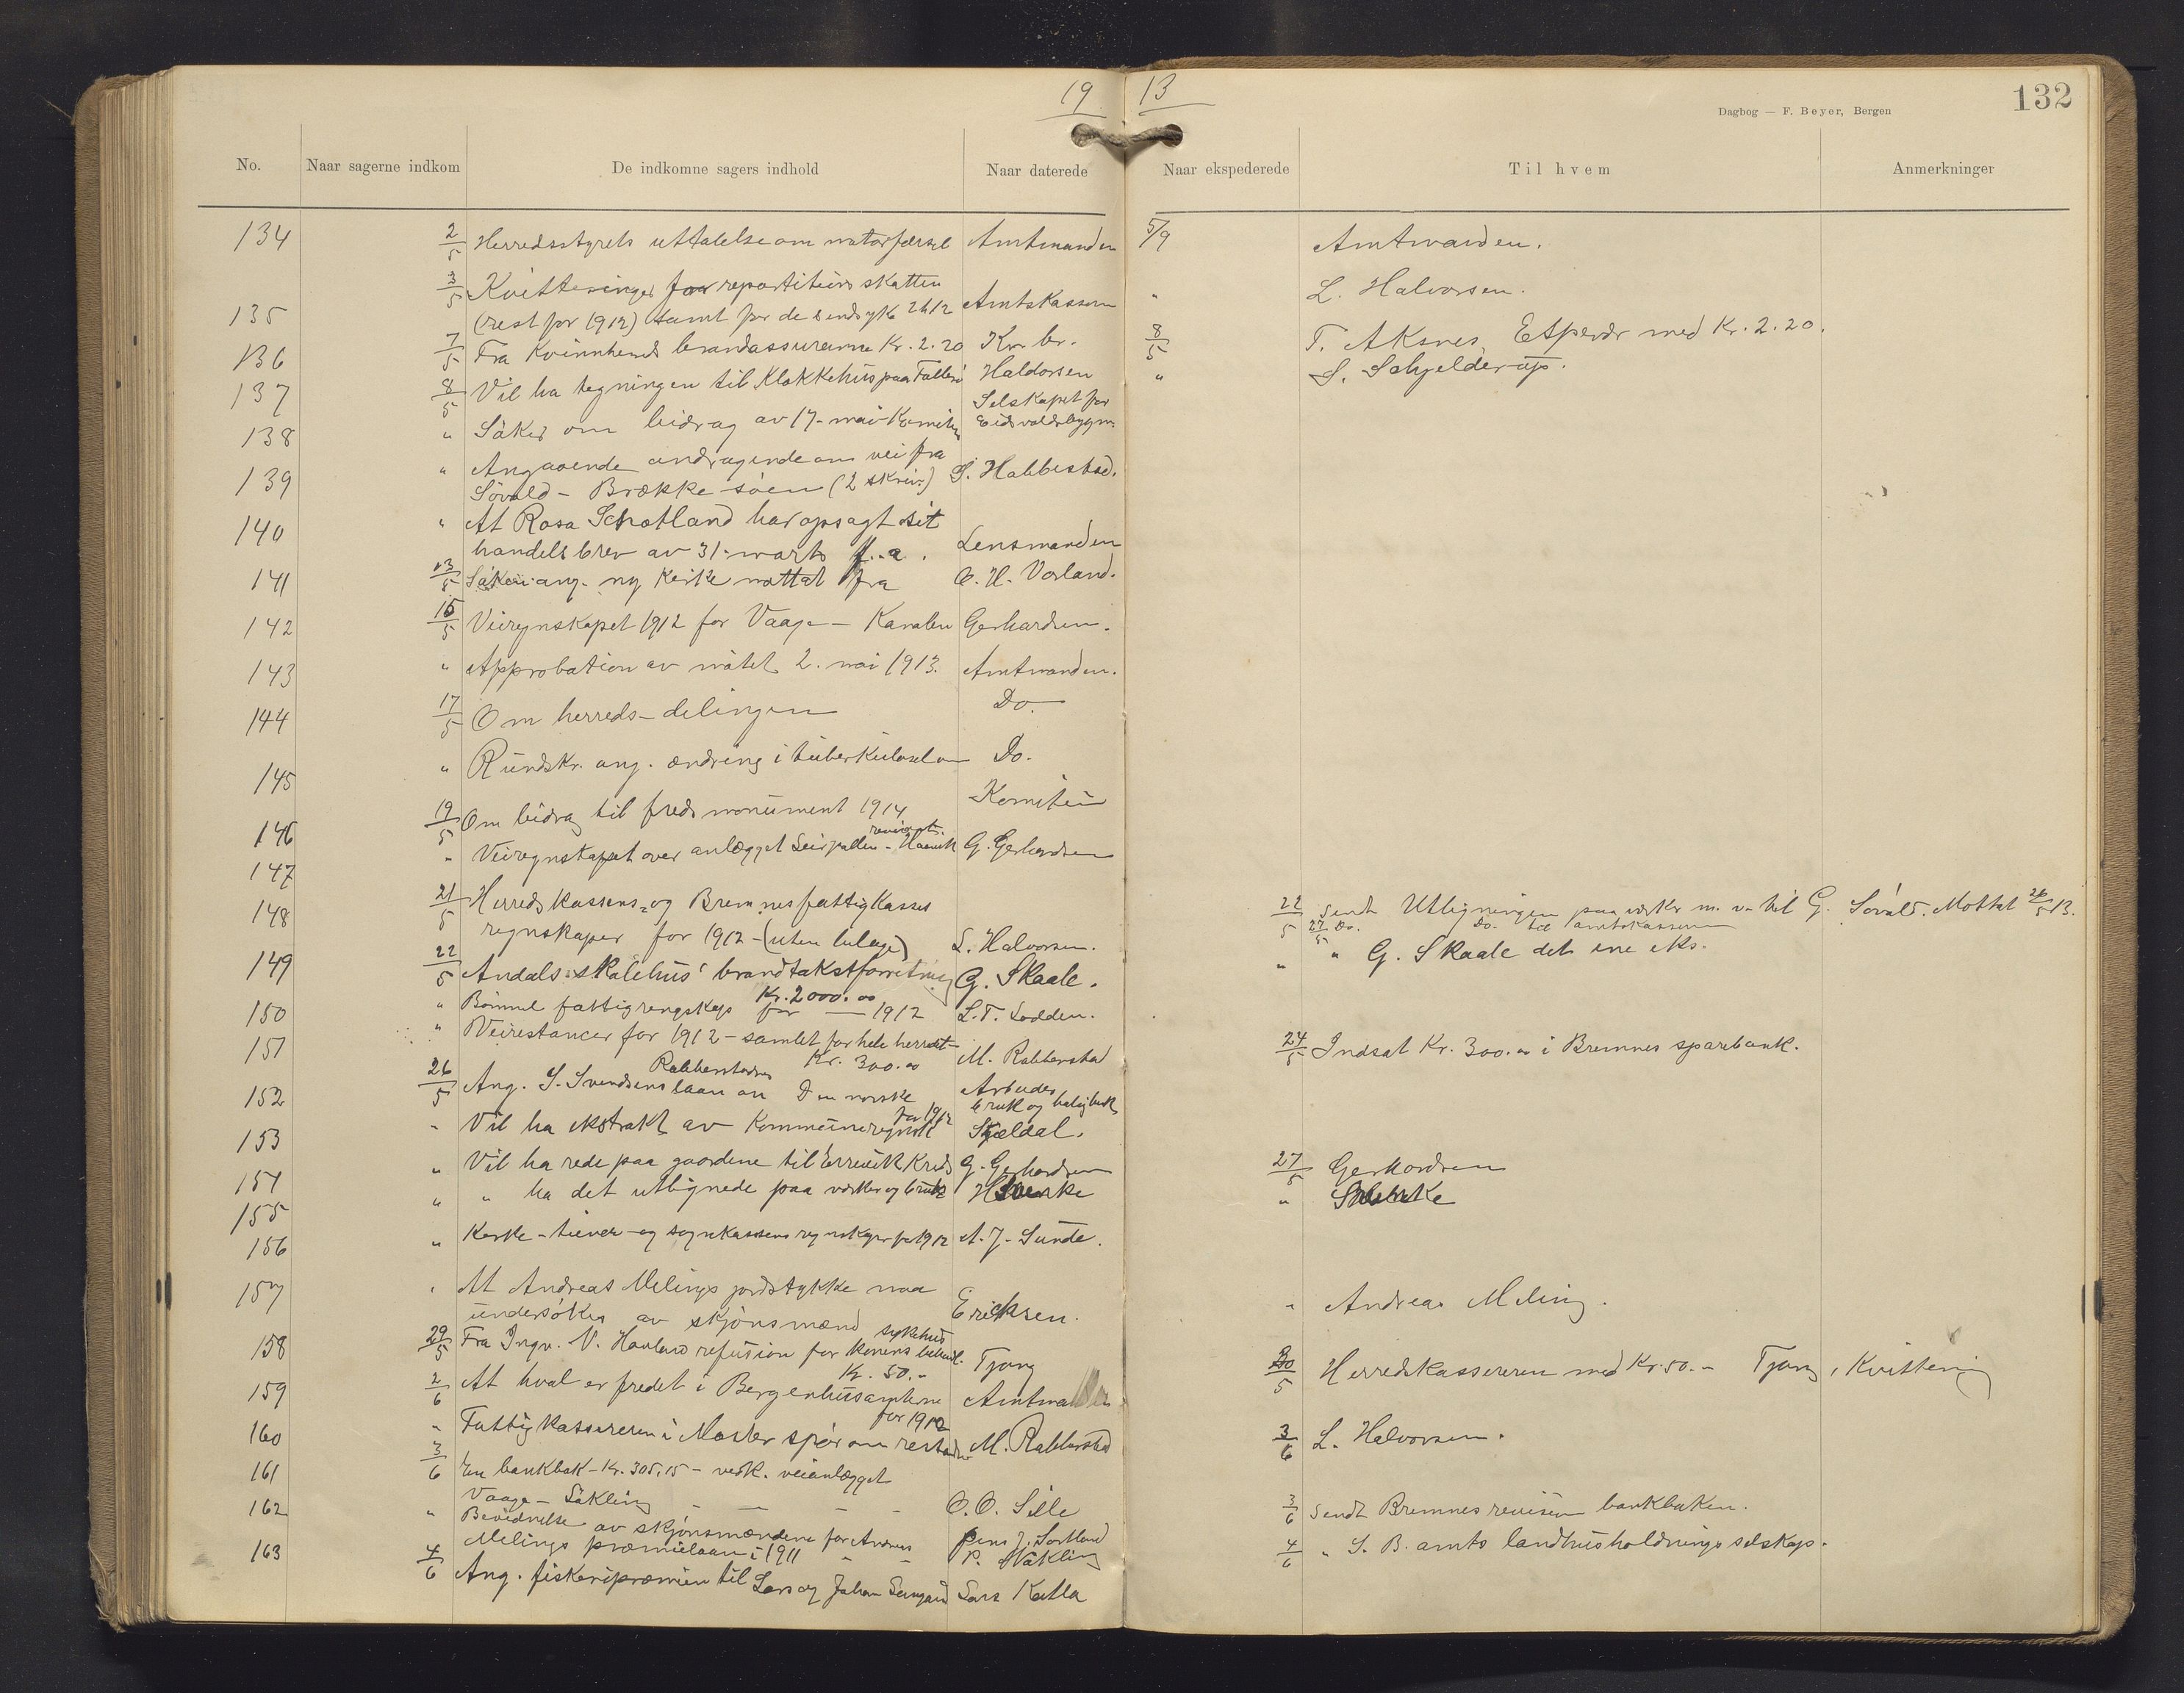 19 13
132
Dagbog — F. Beyer, Bergen
No. Naar sagerne indkom De indkomne sagers indhold Naar daterede Naar ekspederede Til hvem Anmerkninger
134 2/5 Herredsstyrets uttalelse om motorfærsel Amtmanden 5/9 Amtmanden.
3/5 Kvitteringer for repartitions skatten
135 (rest for 1912) samt for de sindsyke 2h12 Amtskassern " L. Halvorsen.
136 7/5 Fra Kvinnherads brandassuranse Kr. 2.20 Kr. br. 8/5 T. Aksnes, Etsperdr med Kr. 2.20.
137 8/5 Vil ha tegningen til Klokkehus paa Haldorsen " S. Schjelderup.
138 " Søker om bidrag av 17-mai-Komiteen Selskapet for Eidsvoldsbygn.
139 " Angaaende andragende om vei fra
Søvold - Brække-søen (2 skriv.) S. Habbestad.
140 " At Rosa Schotland har opsagt sit
handelsbrev av 31-marts f.a. Lensmanden
141 13/5 Søkn. ang. ny Kirke mottat fra O. H. Vorland.
142 15/5 Veiregnskapet 1912 for Vaage - Kanalen Gerhardsen.
143 " Approbation av møtet 2. mai 1913. Amtmanden.
144 17/5 Om herreds-delingen Do.
145 " Rundskr. ang. ændring i tuberkulosel Do.
146 19/5 Om bidrag til freds monument 1914 Komiteen
147 " Veiregnskapet over anlægget - revisionst. G. Gerhardsen
148 21/5 Herredskassens- og Bremnes fattigkasses
regnskaper for 1912 - (uten bilage) L. Halvorsen. 22/5 Sendt Utligningen paa verker m. v. til G. Søvold. Mottat 26/5 13.
27/5 Do. Do. til amtskassern
149 22/5 Andals skolehus' brandtakstforretning G. Skaale. " " G. Skaale det ene eks.
Kr. 2000.00
150 " Bømmel fattigrengskap for — 1912 L. T. Lodden.
151 " Veirestancer for 1912 - samlet for hele herredet
Rabbenstadnes Kr. 300.00 M. Rabbenstad 24/5 Indsat Kr. 300.00 i Bremnes sparebank.
152 26/5 Ang. S. Svendsens laan on Den norske Arbeider bruk og boligbank
153 " Vil ha ekstrakt av Kommuneregnsk for 1912 Skjeldal.
154 " Vil ha rede paa gaardene til Kreds G. Gerhardsen 27/5 Gerhardsen
155 " " ha det utlignede paa verker og bruk "
156 " Kirke-tiende-og sognkassens regnskaper for 1912 A. J. Sunde.
157 " At Andreas Melings jordstykke maa
undersøkes av skjønsmænd Eriksen. " Andreas Meling.
158 29/5 Fra Ingv. V. Havland refusion for konens sykehus behandl.
Kr. 50.- Tjong 30/5 Herredskassereren med Kr. 50.- Tjong, Kvittering
159 2/6 At hval er fredet i Bergenhusamterne Amtmanden
160 " Fattigkassereren i Moster spør om restanser for 1912 M. Rabbenstad 3/6 L. Halvorsen.
161 3/6 En bankbok - Kr. 305,15 - vedk. veianlægget
Vaage - Søkling - — - - O. O. Sille 3/6 Sendt Bremnes revisun bankboken.
162 " Bevidnelse av skjønsmændene for Andreas
Melings præmielaan i 1911 - - Jens J. Sortland P. Økling 4/6 " S. B. amts landhusholdnings selskap.
163 4/6 Ang. fiskeripræmien til Lars og Johan Lars Katla